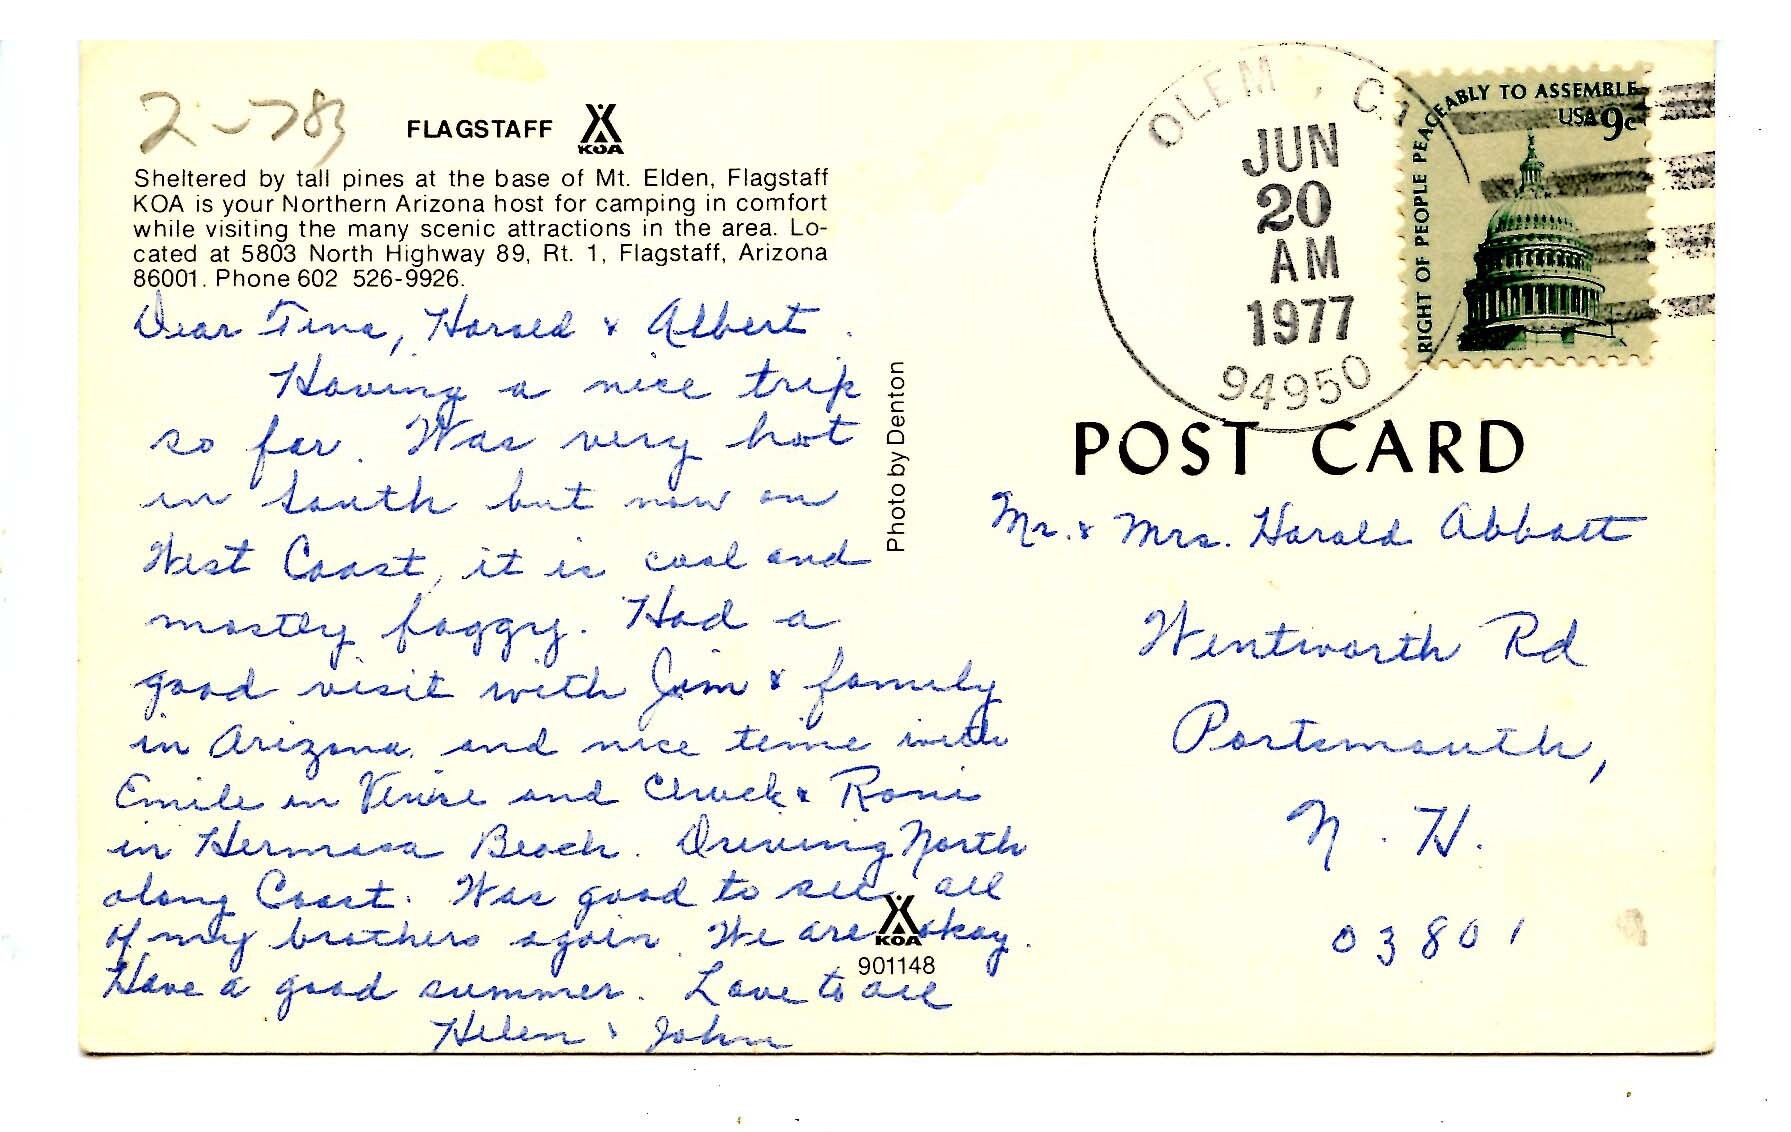 2-783
FLAGSTAFF
KOA
Sheltered by tall pines at the base of Mt. Elden, Flagstaff
KOA is your Northern Arizona host for camping in comfort
while visiting the many scenic attractions in the area. Lo-
cated at 5803 North Highway 89, Rt. 1, Flagstaff, Arizona
86001. Phone 602 526-9926.
Dear Tina, Harold & Albert.
Having a nice trip
so far. Was very hot
in South but now on
West Coast, it is cool and
mostly foggy. Had a
good visit with Jim & family
in Arizona and nice time with
Emile in Venice and Chuck & Roni
in Hermosa Beach. Driving North
along Coast. Was good to see all
of my brothers again. We are okay.
Have a good summer. Love to all
Helen & John
KOA
901148
Photo by Denton
OLEM, CA
JUN
20
AM
1977
94950
RIGHT OF PEOPLE PEACEABLY TO ASSEMBLE
USA 9c
POST CARD
Mr. & Mrs. Harold Abbott
Wentworth Rd
Portsmouth,
N. H.
03801